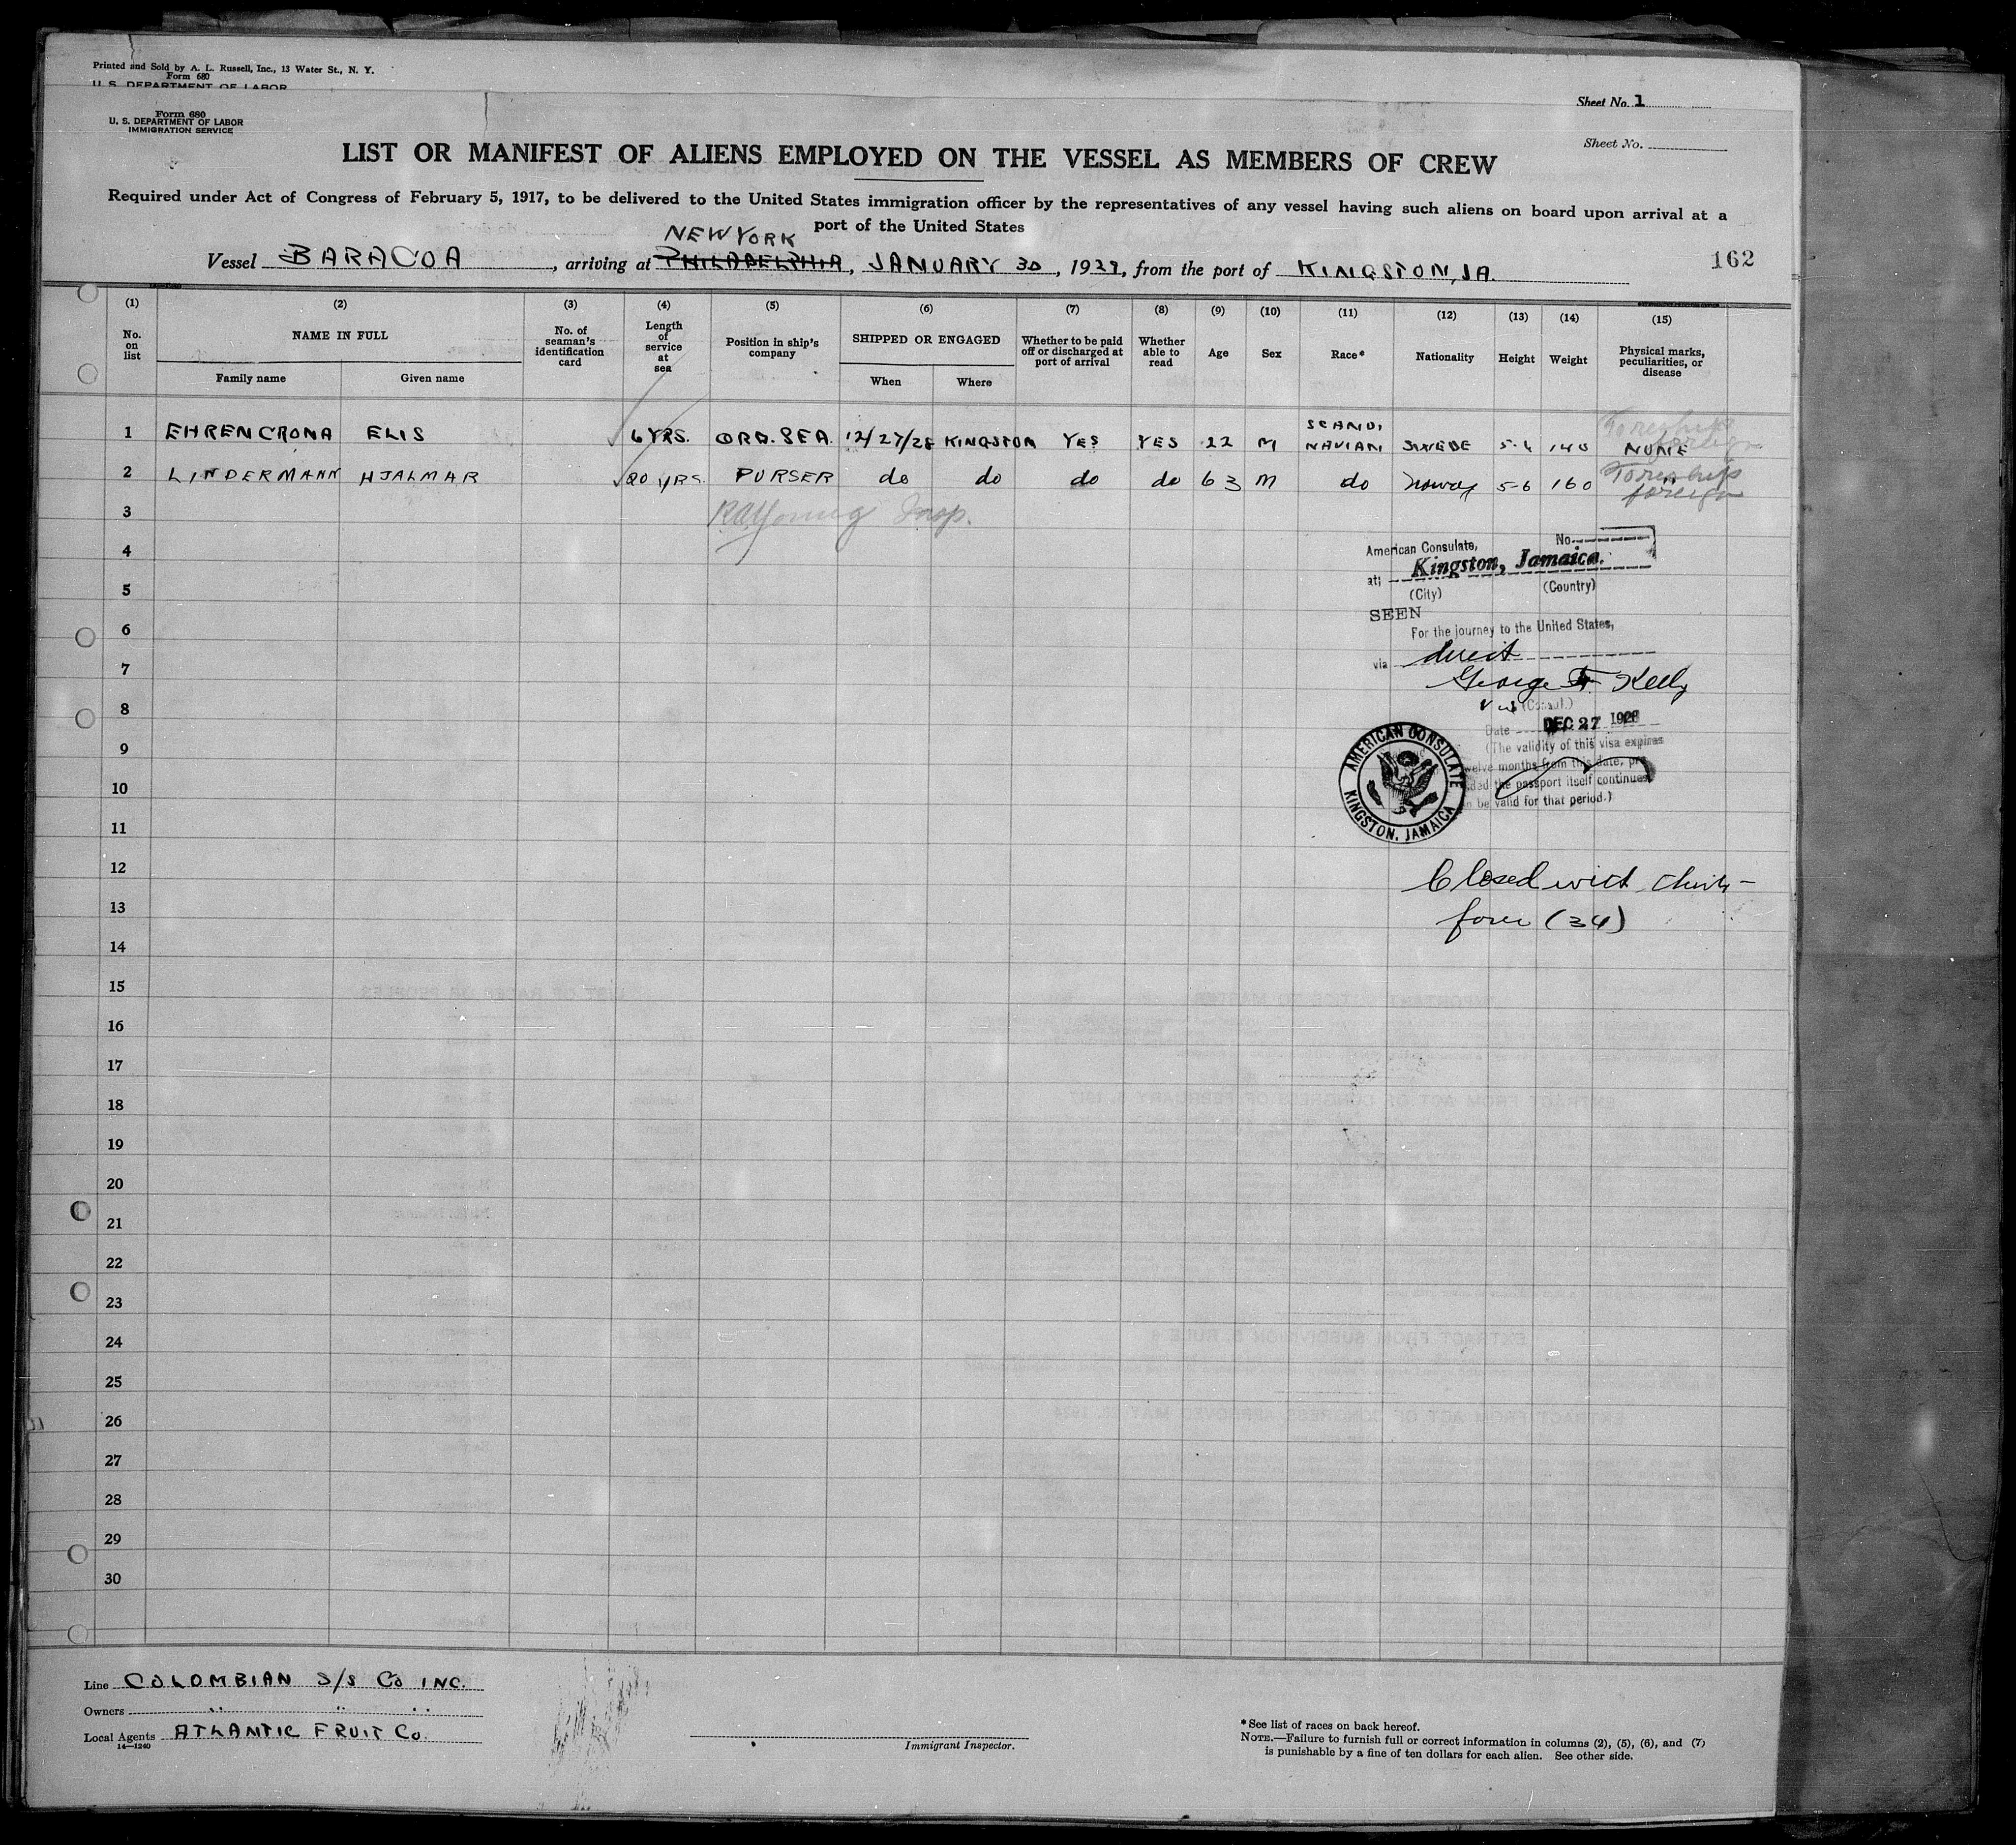 Printed and Sold by A. L. Russell, Inc., 13 Water St., N. Y.
Form 680
U. S. DEPARTMENT OF LABOR
Sheet No. 1
Form 680
U. S. DEPARTMENT OF LABOR
IMMIGRATION SERVICE
Sheet No.
LIST OR MANIFEST OF ALIENS EMPLOYED ON THE VESSEL AS MEMBERS OF CREW
Required under Act of Congress of February 5, 1917, to be delivered to the United States immigration officer by the representatives of any vessel having such aliens on board upon arrival at a
port of the United States
NEW YORK
Vessel BARACOA, arriving at PHILADELPHIA, JANUARY 30, 1929, from the port of KINGSTON, JA.
162
(1) (2) (3) (4) (5) (6) (7) (8) (9) (10) (11) (12) (13) (14) (15)
No. on list
NAME IN FULL
Family name Given name
No. of seaman's identification card
Length of service at sea
Position in ship's company
SHIPPED OR ENGAGED
When Where
Whether to be paid off or discharged at port of arrival
Whether able to read
Age
Sex
Race*
Nationality
Height
Weight
Physical marks, peculiarities, or disease
1 EHRENCRONA ELIS 6 YRS. ORD. SEA. 12/27/28 KINGSTON YES YES 22 M SCANDINAVIAN SWEDE 5-6 140 NONE
To reship foreign
2 LINDERMANN HJALMAR 20 YRS. PURSER do do do do 63 M do Norway 5-6 160 "
To reship foreign
3
Insp.
4
5
6
7
8
9
10
11
12
13
14
15
16
17
18
19
20
21
22
23
24
25
26
27
28
29
30
American Consulate, No.
at; Kingston, Jamaica.
(City) (Country)
SEEN
For the journey to the United States,
via direct
George F. Kelly
(Consul.)
Date DEC 27 1928
(The validity of this visa expires
twelve months from this date, pro
ded the passport itself continues
be valid for that period.)
AMERICAN CONSULATE
KINGSTON, JAMAICA
Closed with thirty-
four (34)
Line COLOMBIAN S/S Co INC.
Owners " " "
Local Agents ATLANTIC FRUIT Co.
14—1240
Immigrant Inspector.
*See list of races on back hereof.
NOTE.—Failure to furnish full or correct information in columns (2), (5), (6), and (7)
is punishable by a fine of ten dollars for each alien. See other side.